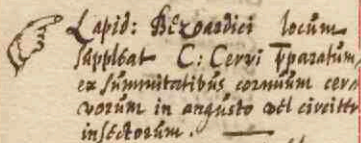 Lapid: Bezoardici locum
suppleat C: Cervi p̄paratum,
ex summitatibus cornuum cer=
vorum in angusto vel circiter
insectorum.